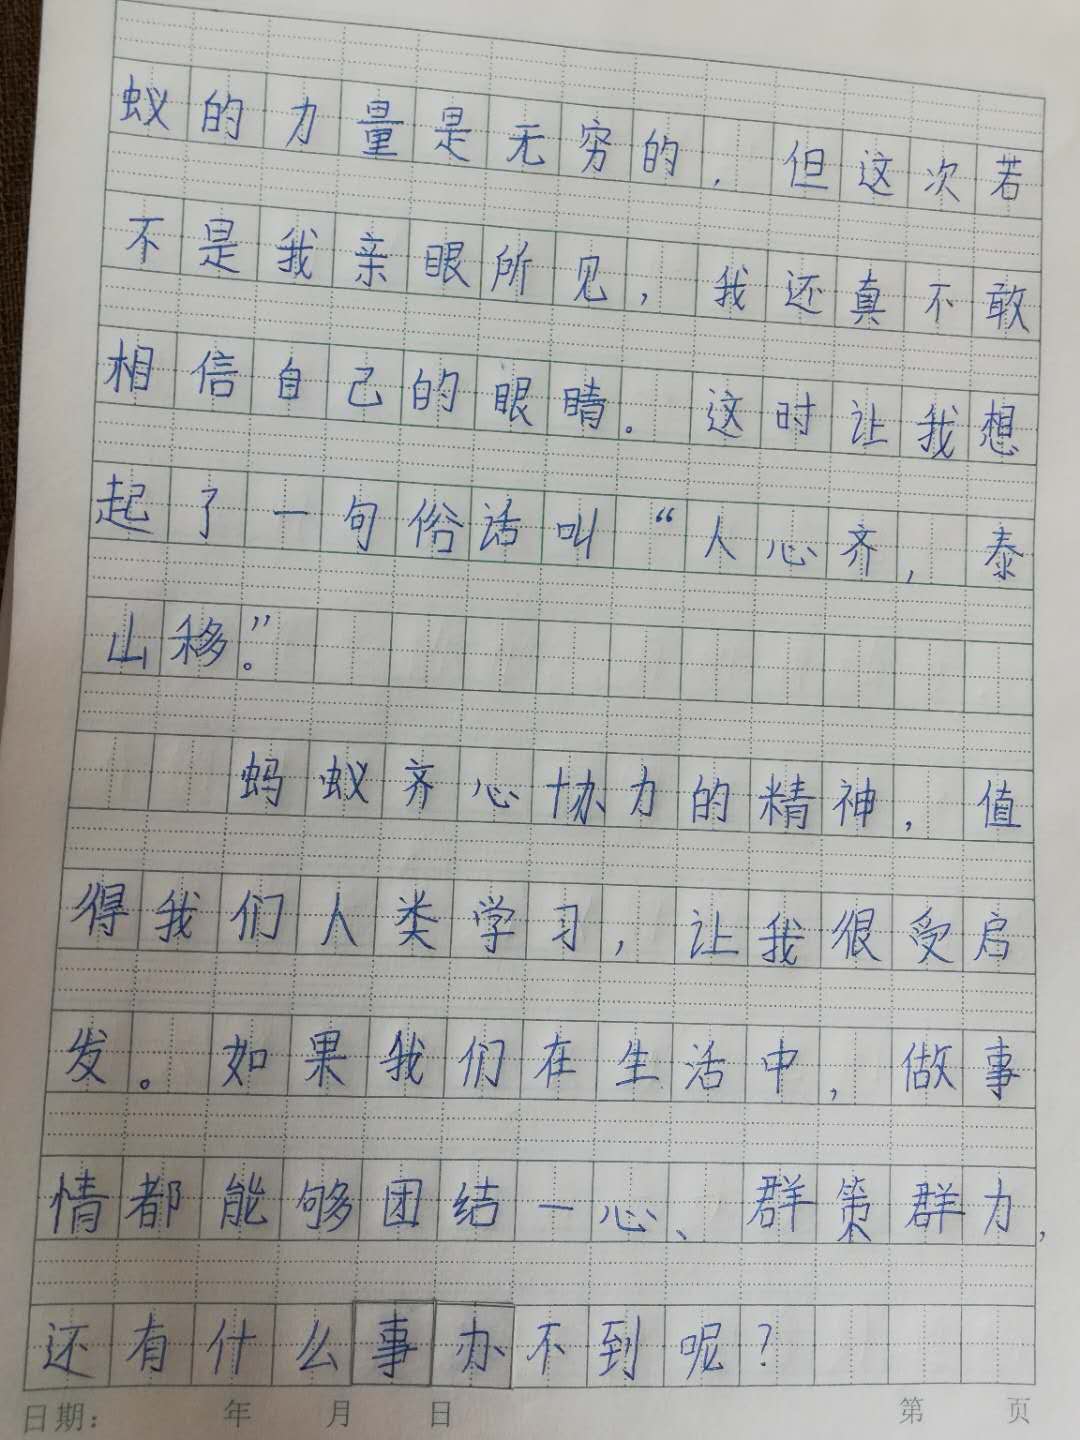 蚁的力量是无穷的，但这次若
不是我亲眼所见，我还真不敢
相信自己的眼睛。这时让我想
起了一句俗话叫“人心齐，泰
山移。”
蚂蚁齐心协力的精神，值
得我们人类学习，让我很受启
发。如果我们在生活中，做事
情都能够团结一心、群策群力，
还有什么事办不到呢？
日期： 年 月 日 第 页